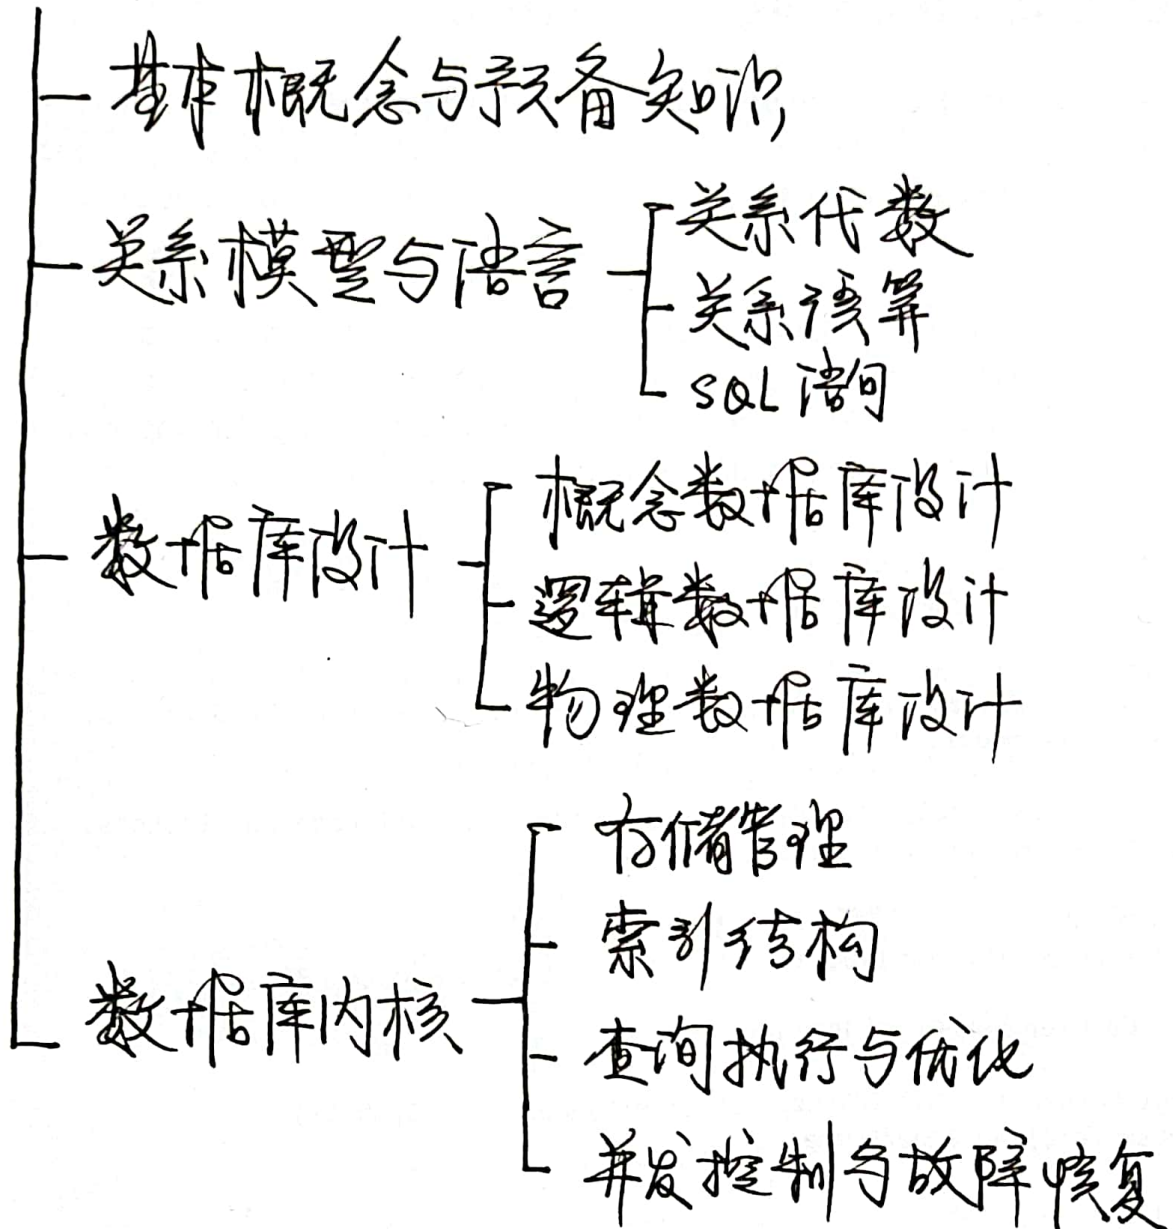 基本概念与预备知识
关系模型与语言
关系代数
关系演算
SQL语句
数据库设计
概念数据库设计
逻辑数据库设计
物理数据库设计
数据库内核
存储管理
索引结构
查询执行与优化
并发控制与故障恢复